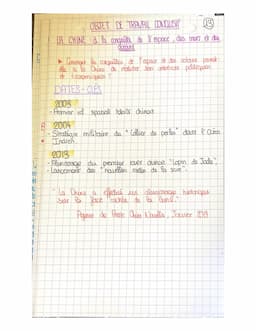 OBJET DE TRAVAIL CONCLUSIF
LA CHINE à la conquête de l'espace, des mers et des océans
Comment la conquête de l'espace et des océans permet-
elle à la Chine de réaliser ses intérêts politiques
et économiques ?
DATES-CLÉS
2003
- Premier vol spatial habité chinois.
2004
- Stratégie militaire du "collier de perles" dans l'Océan
Indien.
2013
- Alunissage du premier rover chinois "Lapin de Jade".
- Lancement des "nouvelles routes de la soie".
"La Chine a effectué un alunissage historique
sur la face cachée de la Lune".
Agence de Presse Chine Nouvelle, Janvier 2019